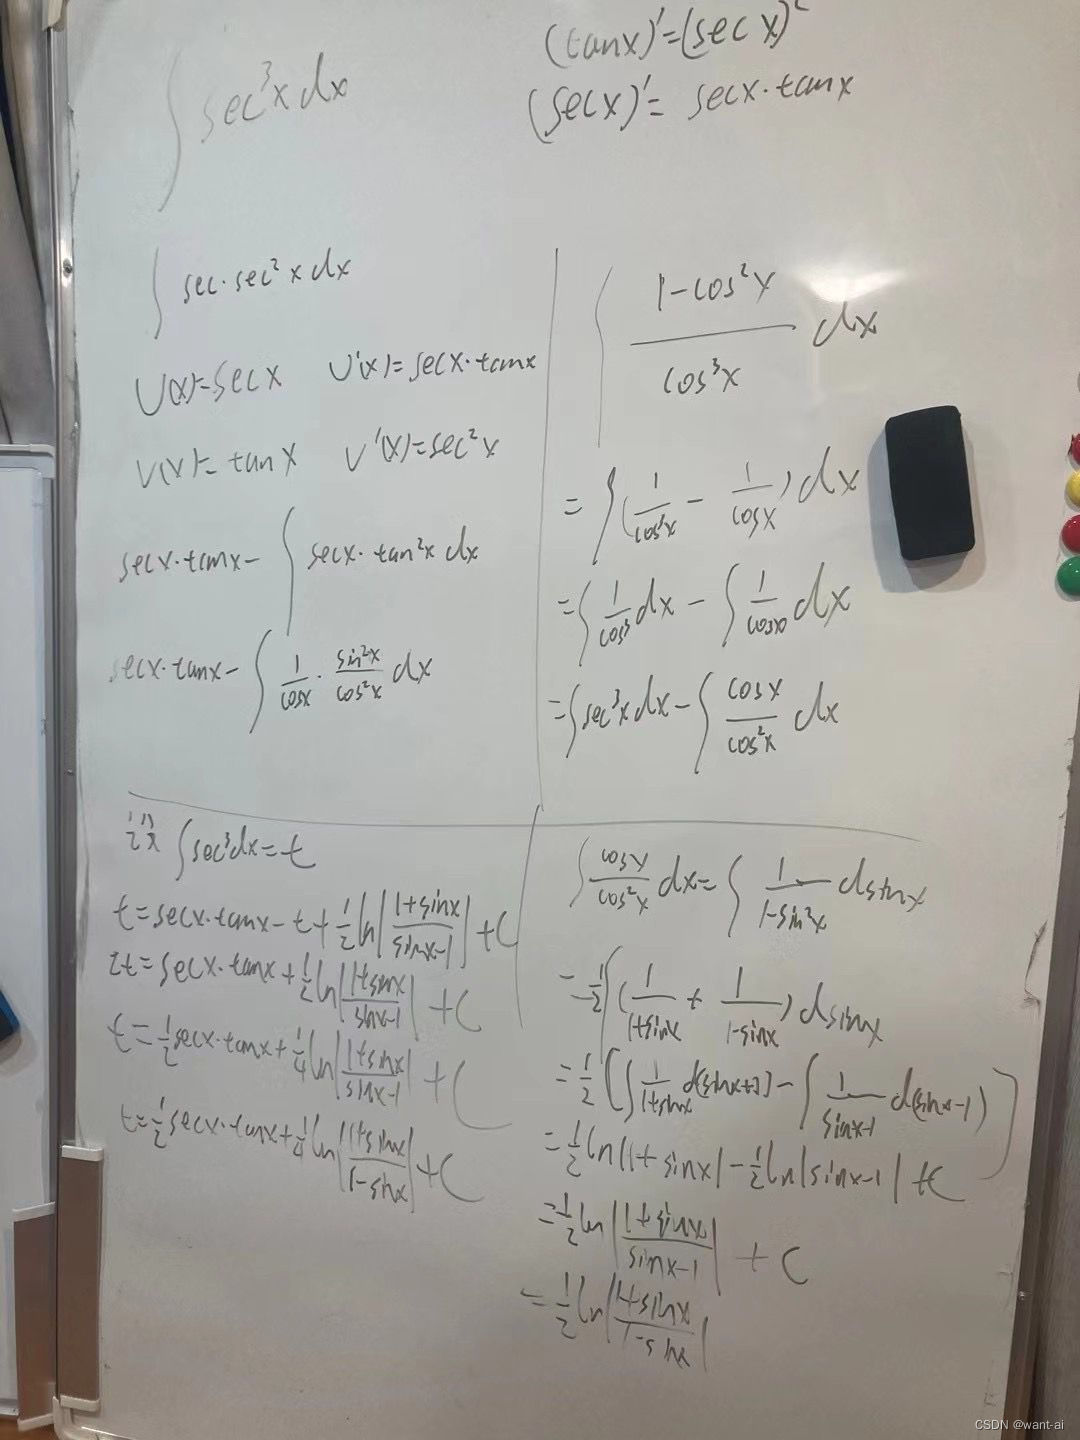 ∫ sec³x dx
(tanx)′=(secx)²
(secx)′= secx·tanx
∫ sec·sec²x dx
U(x)=secx U′(x)=secx·tanx
V(x)= tanx V′(x)=sec²x
secx·tanx- ∫ secx·tan²x dx
secx·tanx- ∫ 1/cosx · sin²x/cos²x dx
∫ (1-cos²x)/cos³x dx
= ∫(1/cos³x - 1/cosx) dx
=∫ 1/cos³ dx - ∫ 1/cosx dx
=∫sec³x dx - ∫ cosx/cos²x dx
设 ∫sec³dx=t
t=secx·tanx-t+1/2 ln|(1+sinx)/(sinx-1)|+C
2t=secx·tanx+1/2 ln|(1+sinx)/(sinx-1)|+C
t=1/2 secx·tanx+1/4 ln|(1+sinx)/(sinx-1)|+C
t=1/2 secx·tanx+1/4 ln|(1+sinx)/(1-sinx)|+C
∫ cosx/cos²x dx=∫ 1/(1-sin²x) dsinx
=1/2 ∫(1/(1+sinx) + 1/(1-sinx)) dsinx
=1/2 (∫ 1/(1+sinx) d(sinx+1) - ∫ 1/(sinx-1) d(sinx-1))
=1/2 ln|1+sinx| - 1/2 ln|sinx-1| +C
=1/2 ln|(1+sinx)/(sinx-1)| + C
=1/2 ln|(1+sinx)/(1-sinx)|
CSDN @want-ai